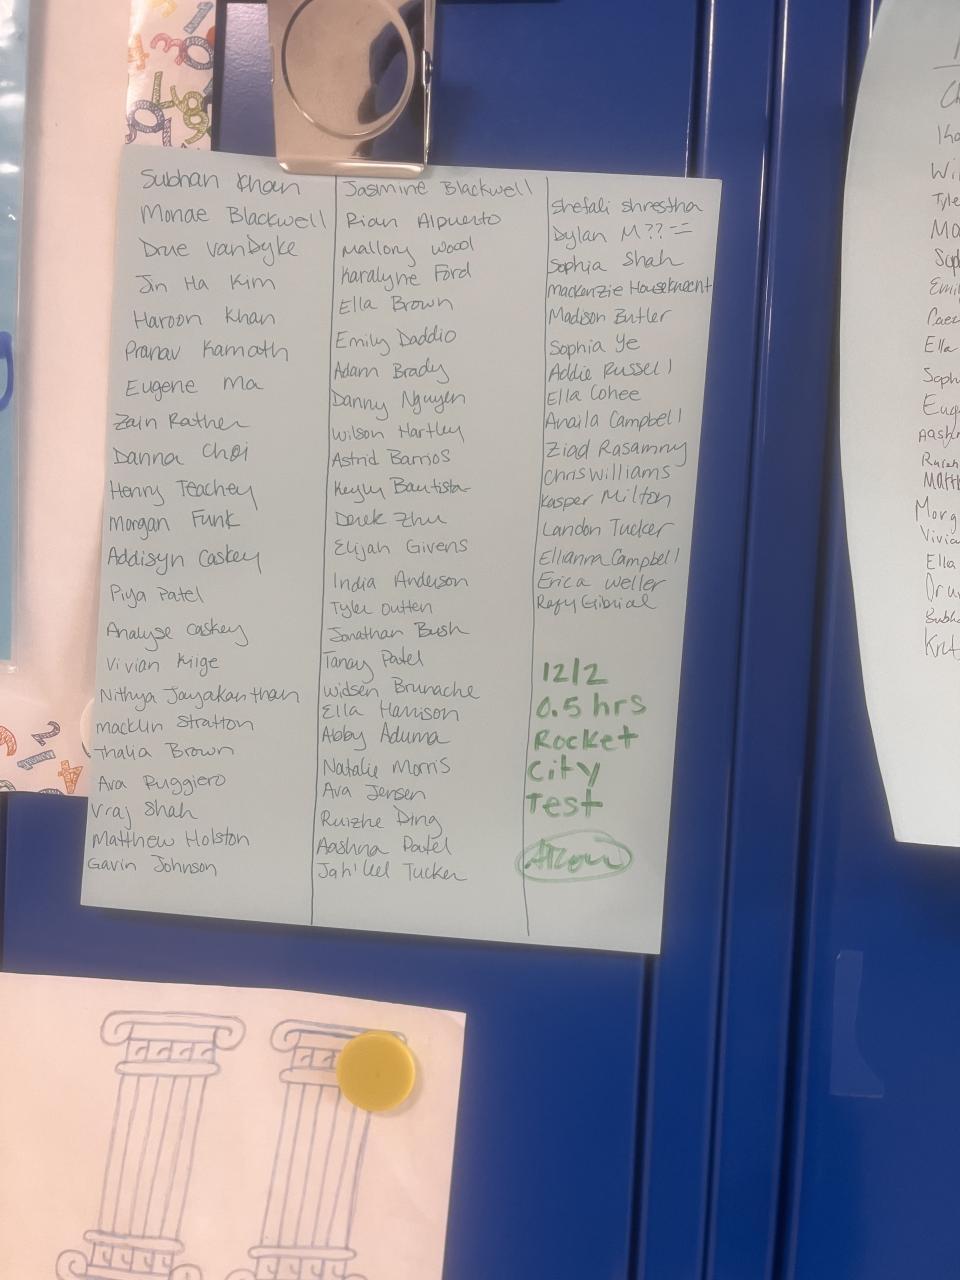 Subhan Khan
Monae Blackwell
Drue VanDyke
Jin Ha Kim
Haroon Khan
Pranav Kamath
Eugene Ma
Zain Rather
Danna Choi
Henry Teachey
Morgan Funk
Addisyn Caskey
Piya Patel
Analyse Caskey
Vivian Kiige
Nithya Jayakanthan
Macklin Stratton
Thalia Brown
Ava Ruggiero
Vraj Shah
Matthew Holston
Gavin Johnson
Jasmine Blackwell
Rian Alpuerto
Mallory Wood
Karalyne Ford
Ella Brown
Emily Daddio
Adam Brady
Danny Nguyen
Wilson Hartley
Astrid Barrios
Bautista
Derek Zhu
Elijah Givens
India Anderson
Tyler Outten
Jonathan Bush
Tanay Patel
Widsen Brunache
Ella Harrison
Abby Aduma
Natalie Morris
Ava Jensen
Ruizhe Ding
Aashna Patel
Jah'kel Tucker
Shefali Shrestha
Dylan M??
Sophia Shah
Mackenzie Houseknecht
Madison Butler
Sophia Ye
Addie Russell
Ella Cohee
Anaila Campbell
Ziad Rasamny
Chris Williams
Kasper Milton
Landon Tucker
Ellianna Campbell
Erica Weller
Rafy
12/2
0.5 hrs
Rocket
City
Test
Ella
Ella